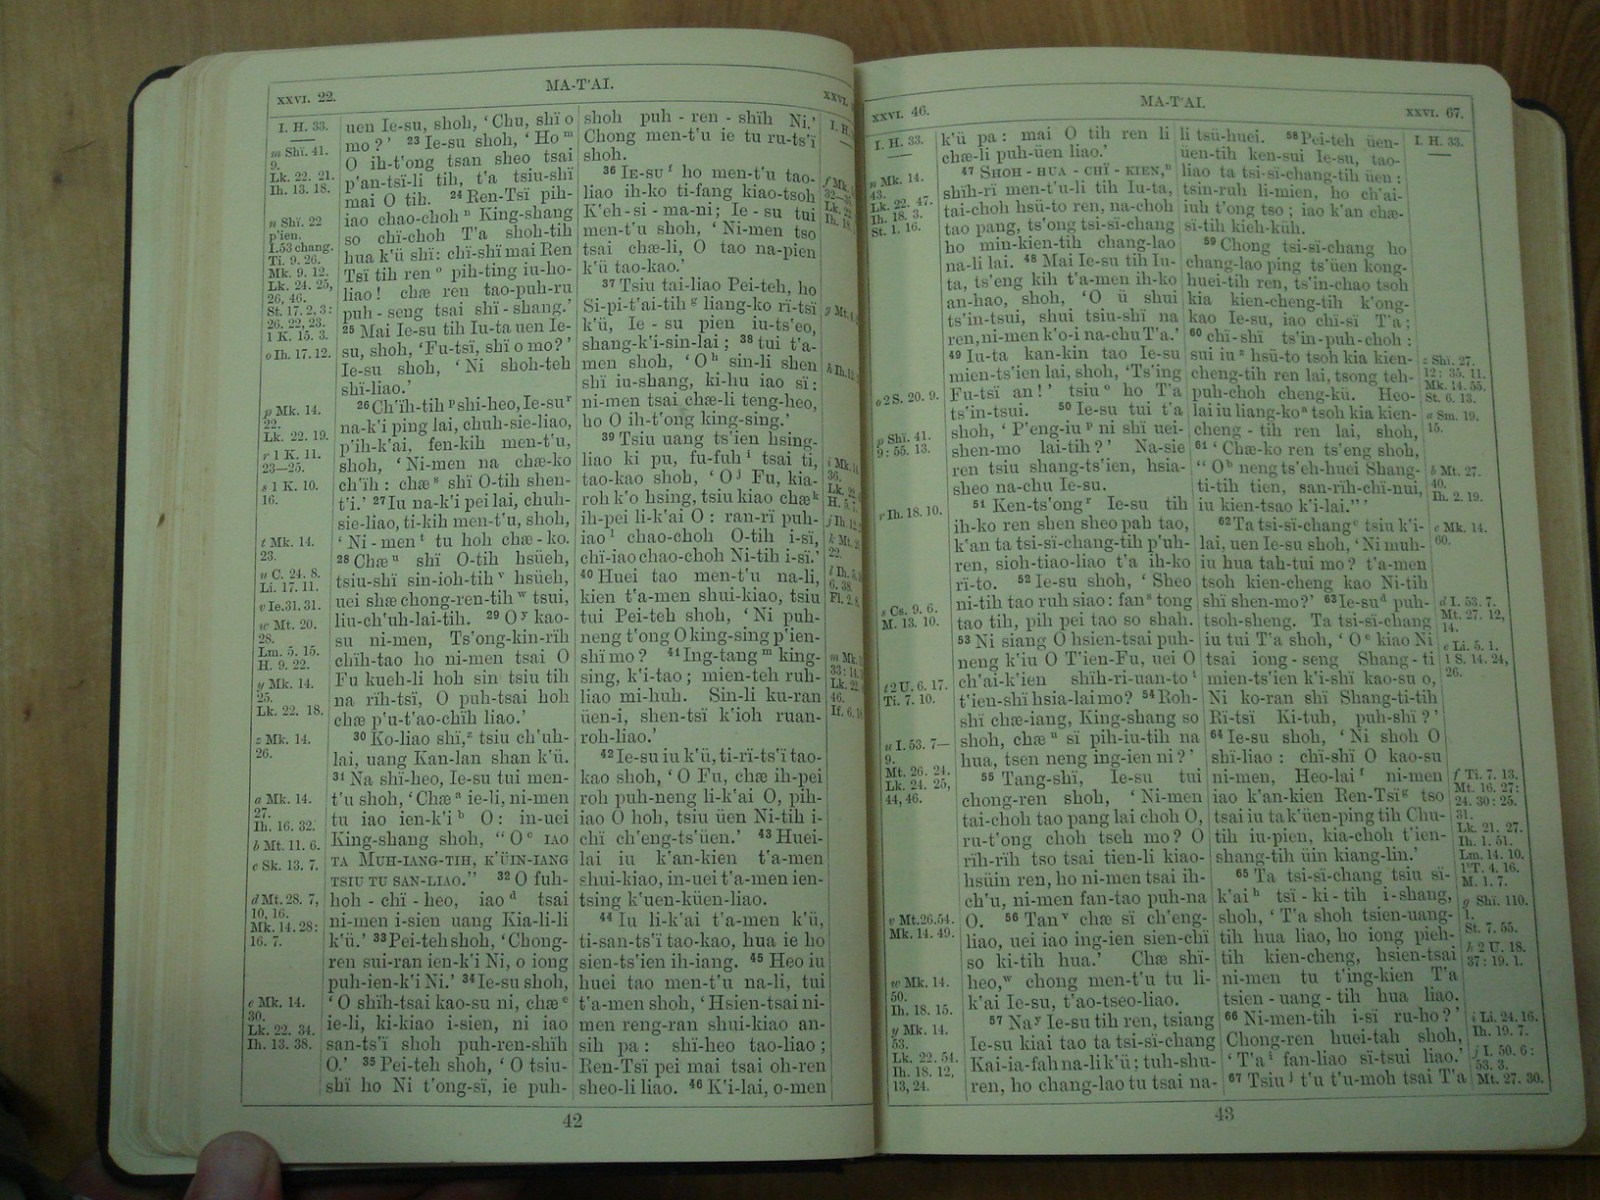 XXVI. 22.
MA-T'AI.
I. H. 33.
m Shï. 41.
9.
Lk. 22. 21.
Ih. 13. 18.
n Shï. 22
p'ien.
I.53 chang.
Ti. 9. 26.
Mk. 9. 12.
Lk. 24. 25,
26, 46.
St. 17. 2, 3:
26. 22, 23.
1 K. 15. 3.
o Ih. 17. 12.
p Mk. 14.
22.
Lk. 22. 19.
r 1 K. 11.
23—25.
s 1 K. 10.
16.
t Mk. 14.
23.
u C. 24. 8.
Li. 17. 11.
v Ie. 31. 31.
w Mt. 20.
28.
Lm. 5. 15.
H. 9. 22.
y Mk. 14.
25.
Lk. 22. 18.
z Mk. 14.
26.
a Mk. 14.
27.
Ih. 16. 32.
b Mt. 11. 6.
c Sk. 13. 7.
d Mt. 28. 7,
10, 16.
Mk. 14. 28:
16. 7.
e Mk. 14.
30.
Lk. 22. 34.
Ih. 13. 38.
uen Ie-su, shoh, ‘Chu, shï o
mo?’ 23 Ie-su shoh, ‘Ho m
O ih-t'ong tsan sheo tsai
p'an-tsï-li tih, t'a tsiu-shï
mai O tih. 24 Ren-Tsï pih-
iao chao-choh n King-shang
so chï-choh T'a shoh-tih
hua k'ü shï: chï-shï mai Ren
Tsï tih ren o pih-ting iu-ho-
liao! chæ ren tao-puh-ru
puh-seng tsai shï-shang.’
25 Mai Ie-su tih Iu-ta uen Ie-
su, shoh, ‘Fu-tsï, shï o mo?’
Ie-su shoh, ‘Ni shoh-teh
shï-liao.’
26 Ch'ïh-tih p shï-heo, Ie-su r
na-k'i ping lai, chuh-sie-liao,
p'ih-k'ai, fen-kih men-t'u,
shoh, ‘Ni-men na chæ-ko
ch'ïh: chæ s shï O-tih shen-
t'i.’ 27 Iu na-k'i pei lai, chuh-
sie-liao, ti-kih men-t'u, shoh,
‘Ni-men t tu hoh chæ-ko.
28 Chæ u shï O-tih hsüeh,
tsiu-shï sin-ioh-tih v hsüeh,
uei shæ chong-ren-tih w tsui,
liu-ch'uh-lai-tih. 29 O y kao-
su ni-men, Ts'ong-kin-rïh
chïh-tao ho ni-men tsai O
Fu kueh-li hoh sin tsiu tih
na rïh-tsï, O puh-tsai hoh
chæ p'u-t'ao-chïh liao.’
30 Ko-liao shï, z tsiu ch'uh-
lai, uang Kan-lan shan k'ü.
31 Na shï-heo, Ie-su tui men-
t'u shoh, ‘Chæ a ie-li, ni-men
tu iao ien-k'i b O: in-uei
King-shang shoh, “O c IAO
TA MUH-IANG-TIH, K'ÜIN-IANG
TSIU TU SAN-LIAO.” 32 O fuh-
hoh-chï-heo, iao d tsai
ni-men i-sien uang Kia-li-li
k'ü.’ 33 Pei-teh shoh, ‘Chong-
ren sui-ran ien-k'i Ni, o iong
puh-ien-k'i Ni.’ 34 Ie-su shoh,
‘O shïh-tsai kao-su ni, chæ e
ie-li, ki-kiao i-sien, ni iao
san-ts'ï shoh puh-ren-shïh
O.’ 35 Pei-teh shoh, ‘O tsiu-
shï ho Ni t'ong-sï, ie puh-
shoh puh-ren-shïh Ni.’
Chong men-t'u ie tu ru-ts'ï
shoh.
36 IE-SU f ho men-t'u tao-
liao ih-ko ti-fang kiao-tsoh
K'eh-si-ma-ni; Ie-su tui
men-t'u shoh, ‘Ni-men tso
tsai chæ-li, O tao na-pien
k'ü tao-kao.’
37 Tsiu tai-liao Pei-teh, ho
Si-pi-t'ai-tih g liang-ko rï-tsï
k'ü, Ie-su pien iu-ts'eo,
shang-k'i-sin-lai; 38 tui t'a-
men shoh, ‘O h sin-li shen
shï iu-shang, ki-hu iao sï:
ni-men tsai chæ-li teng-heo,
ho O ih-t'ong king-sing.’
39 Tsiu uang ts'ien hsing-
liao ki pu, fu-fuh i tsai ti,
tao-kao shoh, ‘O j Fu, kia-
roh k'o hsing, tsiu kiao chæ k
ih-pei li-k'ai O: ran-rï puh-
iao l chao-choh O-tih i-sï,
chï-iao chao-choh Ni-tih i-sï.’
40 Huei tao men-t'u na-li,
kien t'a-men shui-kiao, tsiu
tui Pei-teh shoh, ‘Ni puh-
neng t'ong O king-sing p'ien-
shï mo? 41 Ing-tang m king-
sing, k'i-tao; mien-teh ruh-
liao mi-huh. Sin-li ku-ran
üen-i, shen-tsï k'ioh ruan-
roh-liao.’
42 Ie-su iu k'ü, ti-rï-ts'ï tao-
kao shoh, ‘O Fu, chæ ih-pei
roh puh-neng li-k'ai O, pih-
iao O hoh, tsiu üen Ni-tih i-
chï ch'eng-ts'üen.’ 43 Huei-
lai iu k'an-kien t'a-men
shui-kiao, in-uei t'a-men ien-
tsing k'uen-küen-liao.
44 Iu li-k'ai t'a-men k'ü,
ti-san-ts'ï tao-kao, hua ie ho
sien-ts'ien ih-iang. 45 Heo iu
huei tao men-t'u na-li, tui
t'a-men shoh, ‘Hsien-tsai ni-
men reng-ran shui-kiao an-
sih pa: shï-heo tao-liao;
Ren-Tsï pei mai tsai oh-ren
sheo-li liao. 46 K'i-lai, o-men
42
XXVI. 46.
MA-T'AI.
XXVI. 67.
I. H. 33.
n Mk. 14.
43.
Lk. 22. 47.
Ih. 18. 3.
St. 1. 16.
o 2 S. 20. 9.
p Shï. 41.
9: 55. 13.
r Ih. 18. 10.
s Cs. 9. 6.
M. 13. 10.
t 2 U. 6. 17.
Ti. 7. 10.
u I. 53. 7—
9.
Mt. 26. 24.
Lk. 24. 25,
44, 46.
v Mt. 26. 54.
Mk. 14. 49.
w Mk. 14.
50.
Ih. 18. 15.
y Mk. 14.
53.
Lk. 22. 54.
Ih. 18. 12,
13, 24.
k'ü pa: mai O tih ren li
chæ-li puh-üen liao.’
47 SHOH-HUA-CHÏ-KIEN, n
shïh-rï men-t'u-li tih Iu-ta,
tai-choh hsü-to ren, na-choh
tao pang, ts'ong tsi-sï-chang
ho min-kien-tih chang-lao
na-li lai. 48 Mai Ie-su tih Iu-
ta, ts'eng kih t'a-men ih-ko
an-hao, shoh, ‘O ü shui
ts'in-tsui, shui tsiu-shï na
ren, ni-men k'o-i na-chu T'a.’
49 Iu-ta kan-kin tao Ie-su
mien-ts'ien lai, shoh, ‘Ts'ing
Fu-tsï an!’ tsiu o ho T'a
ts'in-tsui. 50 Ie-su tui t'a
shoh, ‘P'eng-iu p ni shï uei-
shen-mo lai-tih?’ Na-sie
ren tsiu shang-ts'ien, hsia-
sheo na-chu Ie-su.
51 Ken-ts'ong r Ie-su tih
ih-ko ren shen sheo pah tao,
k'an ta tsi-sï-chang-tih p'uh-
ren, sioh-tiao-liao t'a ih-ko
rï-to. 52 Ie-su shoh, ‘Sheo
ni-tih tao ruh siao: fan s tong
tao tih, pih pei tao so shah.
53 Ni siang O hsien-tsai puh-
neng k'iu O T'ien-Fu, uei O
ch'ai-k'ien shïh-ri-uan-to t
t'ien-shï hsia-lai mo? 54 Roh-
shï chæ-iang, King-shang so
shoh, chæ u sï pih-iu-tih na
hua, tsen neng ing-ien ni?’
55 Tang-shï, Ie-su tui
chong-ren shoh, ‘Ni-men
tai-choh tao pang lai choh O,
ru-t'ong choh tseh mo? O
rïh-rïh tso tsai tien-li kiao-
hsüin ren, ho ni-men tsai ih-
ch'u, ni-men fan-tao puh-na
O. 56 Tan v chæ sï ch'eng-
liao, uei iao ing-ien sien-chï
so ki-tih hua.’ Chæ shï-
heo, w chong men-t'u tu li-
k'ai Ie-su, t'ao-tseo-liao.
57 Na y Ie-su tih ren, tsiang
Ie-su kiai tao ta tsi-sï-chang
Kai-ia-fah na-li k'ü; tuh-shu-
ren, ho chang-lao tu tsai na-
li tsü-huei. 58 Pei-teh üen-
üen-tih ken-sui Ie-su, tao-
liao ta tsi-sï-chang-tih üen:
tsin-ruh li-mien, ho ch'ai-
iuh t'ong tso; iao k'an chæ-
sï-tih kieh-küh.
59 Chong tsi-sï-chang ho
chang-lao ping ts'üen kong-
huei-tih ren, ts'in-chao tsoh
kia kien-cheng-tih k'ong-
kao Ie-su, iao chï-sï T'a;
60 chï-shï ts'in-puh-choh:
sui iu z hsü-to tsoh kia kien-
cheng-tih ren lai, tsong teh-
puh-choh cheng-kü. Heo-
lai iu liang-ko a tsoh kia kien-
cheng-tih ren lai, shoh,
61 ‘Chæ-ko ren ts'eng shoh,
“O b neng ts'eh-huei Shang-
ti-tih tien, san-rïh-chï-nui,
iu kien-tsao k'i-lai.”’
62 Ta tsi-sï-chang c tsiu k'i-
lai, uen Ie-su shoh, ‘Ni muh-
iu hua tah-tui mo? t'a-men
tsoh kien-cheng kao Ni-tih
shï shen-mo?’ 63 Ie-su d puh-
tsoh-sheng. Ta tsi-sï-chang
iu tui T'a shoh, ‘O e kiao Ni
tsai iong-seng Shang-ti
mien-ts'ien k'i-shï kao-su o,
Ni ko-ran shï Shang-ti-tih
Rï-tsï Ki-tuh, puh-shï?’
64 Ie-su shoh, ‘Ni shoh O
shï-liao: chï-shï O kao-su
ni-men, Heo-lai f ni-men
iao k'an-kien Ren-Tsï g tso
tsai iu ta k'üen-ping tih Chu-
tih iu-pien, kia-choh t'ien-
shang-tih üin kiang-lin.’
65 Ta tsi-sï-chang tsiu sï-
k'ai h tsï-ki-tih i-shang,
shoh, ‘T'a shoh tsien-uang-
tih hua liao, ho iong pieh-
tih kien-cheng, hsien-tsai
ni-men tu t'ing-kien T'a
tsien-uang-tih hua liao.
66 Ni-men-tih i-sï ru-ho?’
Chong-ren huei-tah shoh,
‘T'a i fan-liao sï-tsui liao.’
67 Tsiu j t'u t'u-moh tsai T'a
I. H. 33.
z Shï. 27.
12: 35. 11.
Mk. 14. 55.
St. 6. 13.
a Sm. 19.
15.
b Mt. 27.
40.
Ih. 2. 19.
c Mk. 14.
60.
d I. 53. 7.
Mt. 27. 12,
14.
e Li. 5. 1.
1 S. 14. 24,
26.
f Ti. 7. 13.
Mt. 16. 27:
24. 30: 25.
31.
Lk. 21. 27.
Ih. 1. 51.
Lm. 14. 10.
1 T. 4. 16.
M. 1. 7.
g Shï. 110.
1.
St. 7. 55.
h 2 U. 18.
37: 19. 1.
i Li. 24. 16.
Ih. 19. 7.
j I. 50. 6:
53. 3.
Mt. 27. 30.
43